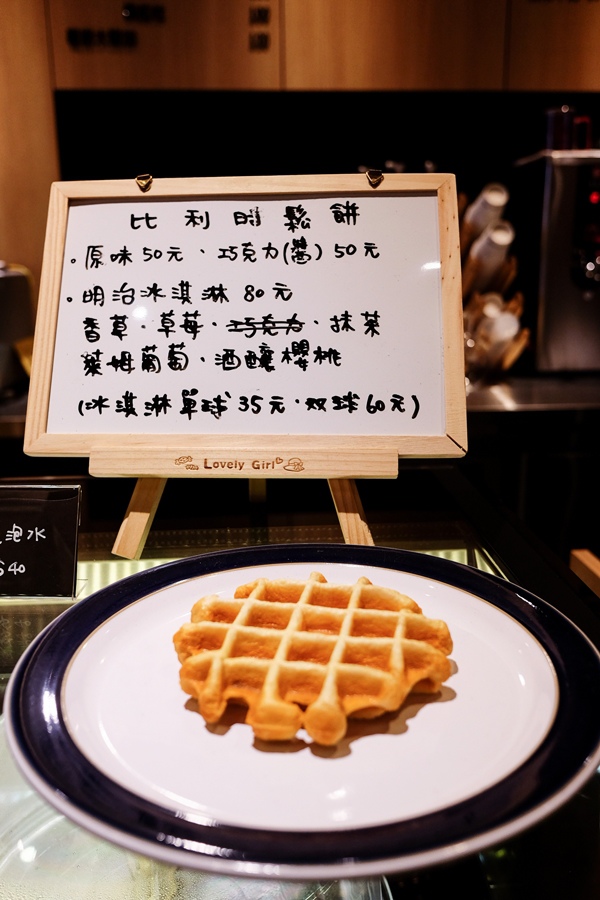 比利時鬆餅
。原味50元、巧克力(醬)50元
。明治冰淇淋 80元
香草·草莓·巧克力·抹茶
萊姆葡萄·酒釀櫻桃
(冰淇淋單球35元·双球60元)
Lovely Girl
泡水
$40